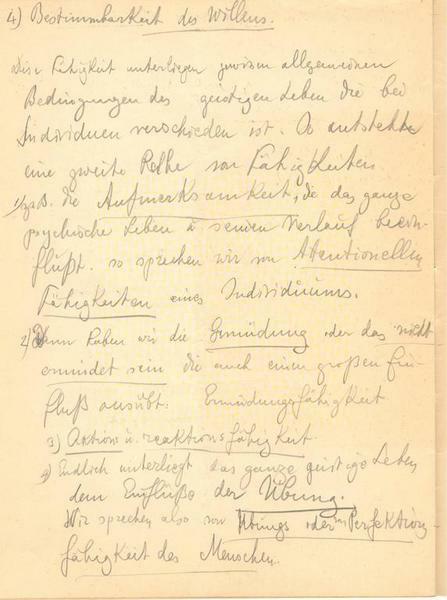 4) Bestimmbarkeit des Willens.
Diese Fähigkeit unterliegen gewissen allgemeinen
Bedingungen des geistigen Leben die bei
Individuen verschieden ist. So entsteht
eine zweite Reihe von Fähigkeiten
1) z.B. die Aufmerksamkeit, die das ganze
psychische Leben u seinen Verlauf beein-
flußt. so sprechen wir von Attentionellen
Fähigkeiten eines Individuums.
2) Dann haben wir die Ermüdung oder das nicht
ermüdet sein die auch einen großen Ein-
fluß ausübt. Ermüdungsfähigkeit
3) Aktions u. reaktionsfähigkeit.
4) Endlich unterliegt das ganze geistige Leben
dem Einflüße der Übung.
Wir sprechen also von Übungs oder Perfektions
fähigkeit des Menschen.